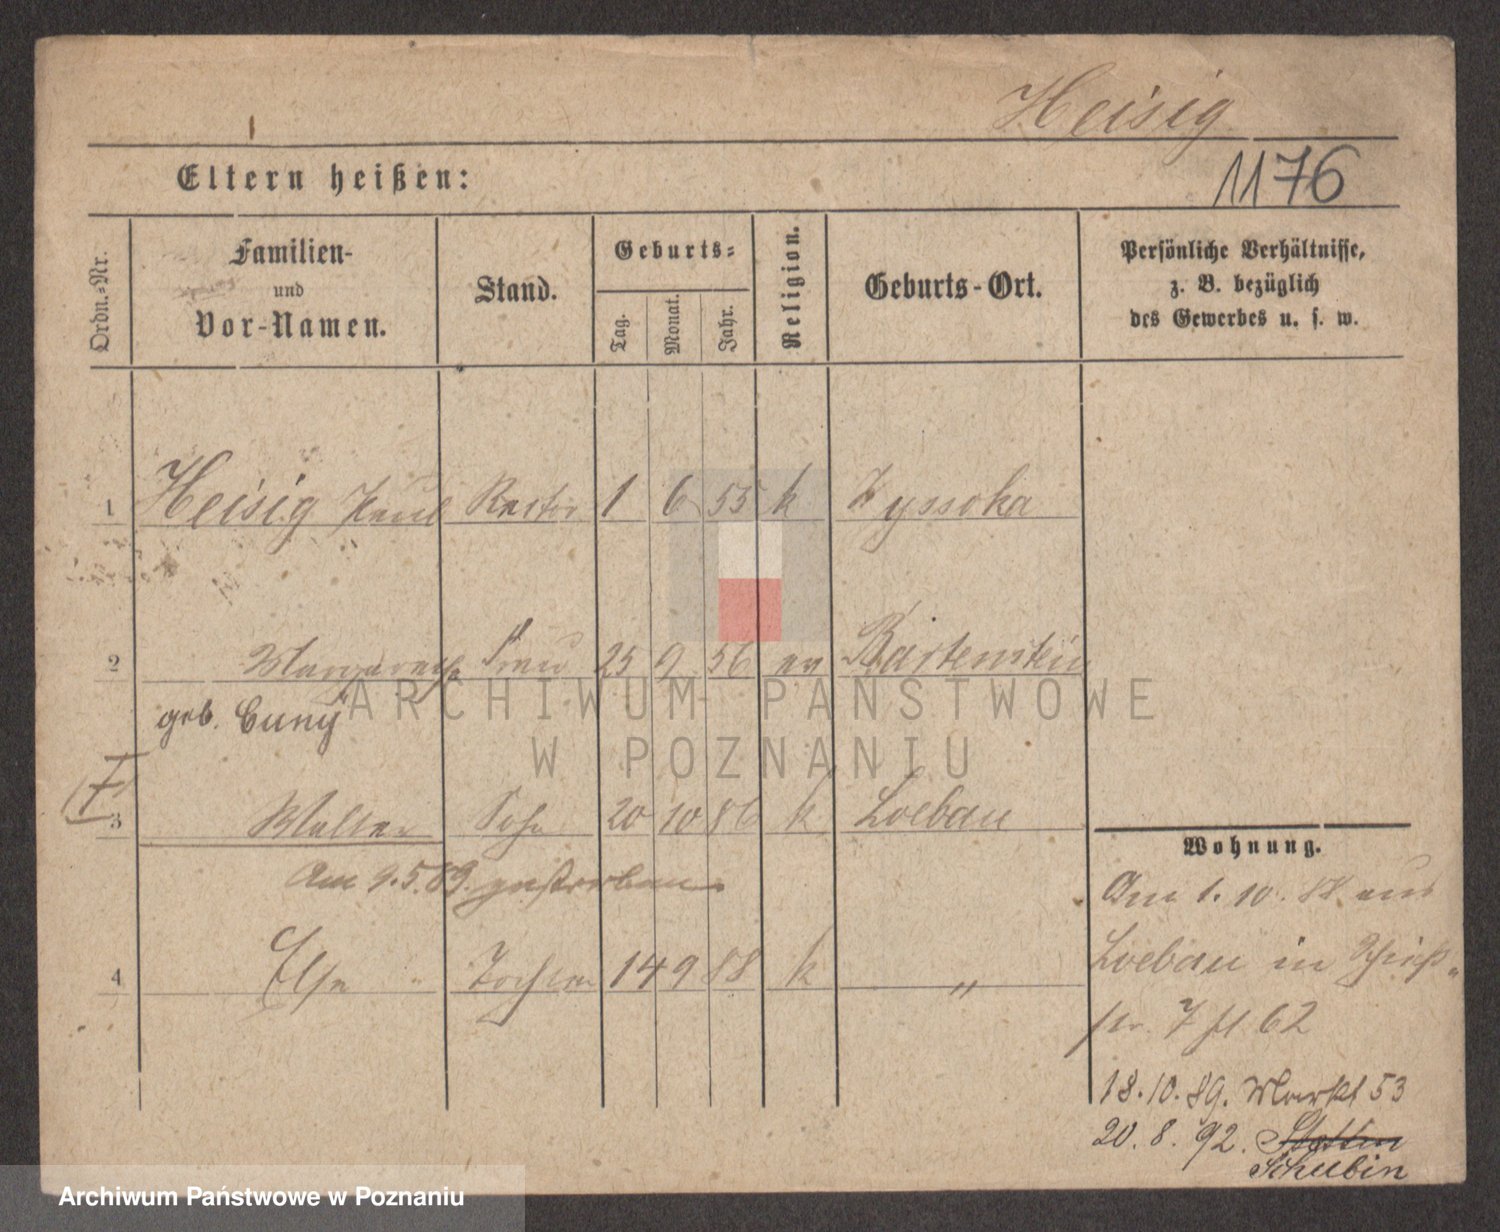 Heisig
1176
Eltern heißen:
Ordn.=Nr.
Familien-
und
Vor-Namen.
Stand.
Geburts=
Tag.
Monat.
Jahr.
Religion.
Geburts-Ort.
Persönliche Verhältnisse,
z. B. bezüglich
des Gewerbes u. s. w.
1 Heisig Paul Rector 1 6 55 k Xyssoka
2 Margarethe Frau 25 9 56 ev Bartenstein
geb. Cuny
3 Walter Sohn 20 10 86 k Loebau
Am 9.5.89. gestorben
4 Else " Tochter 14 9 88 k "
Wohnung.
Am 1. 10. 88 aus
Loebau in
str. 7 fl 62
18.10.89. Markt 53
20. 8. 92. Stettin
Schubin
ARCHIWUM PAŃSTWOWE
W POZNANIU
Archiwum Państwowe w Poznaniu